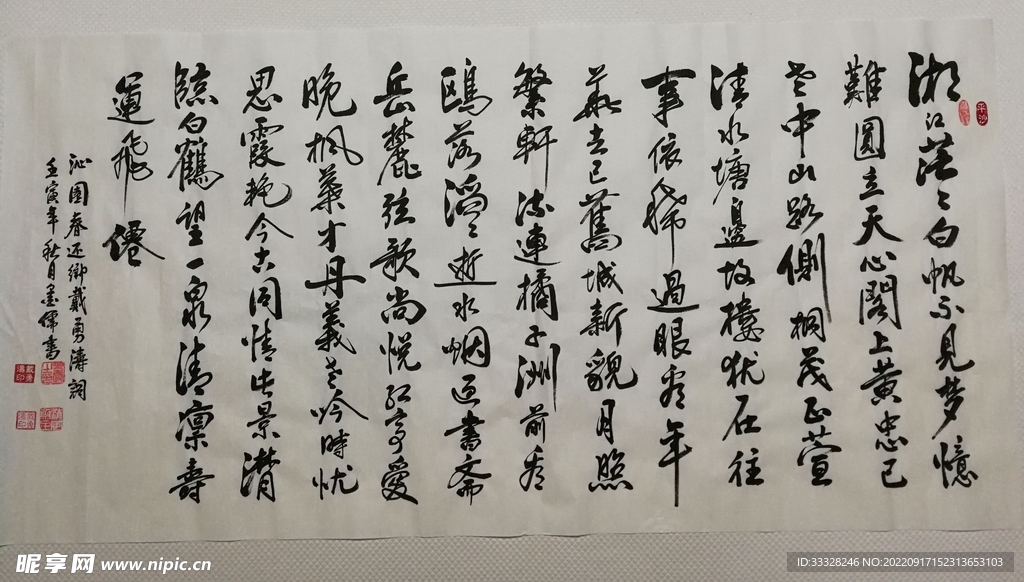 湘江茫〻白帆不見梦憶
難圓立天心閣上黄忠已
老中山路側桐茂正萱
清水塘邊故樓犹在往
事依稀過眼年
去已舊城新貌月照
繁軒流連橘子洲前看
鷗落滔〻逝水烟迎書斋
岳麓弦歌尚悦红亭愛
晚枫葉才丹義老吟時忧
思霞艳今古同情此景潸
臨白鶴望一泉清凛壽
運飛僊
沁園春还鄉戴勇濤詞
壬寅年秋月墨儒書
昵享网 www.nipic.cn
ID:33328246 NO:20220917152313653103